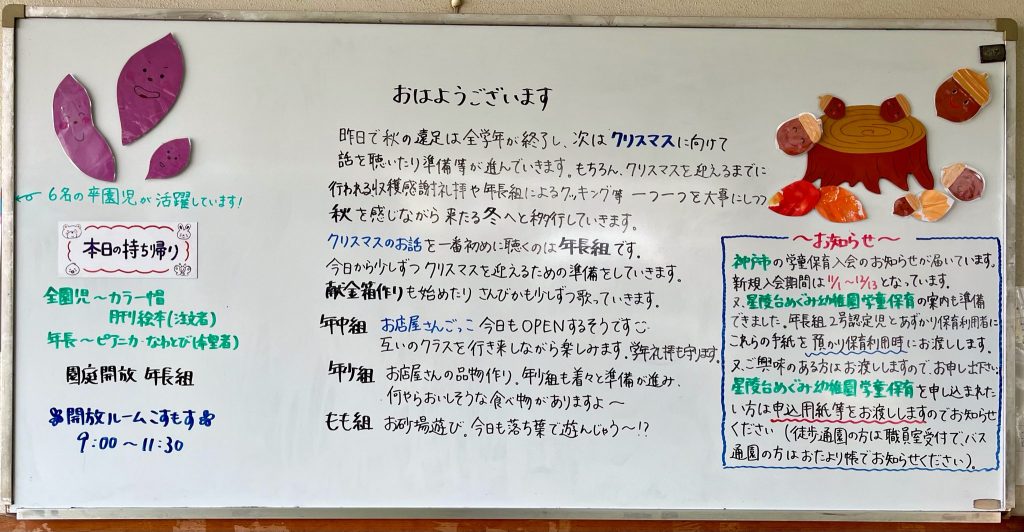 ← 6名の卒園児が活躍しています!
本日の持ち帰り
全園児〜カラー帽
月刊絵本(注文者)
年長〜ピアニカ・なわとび(希望者)
園庭開放 年長組
開放ルームこすもす
9:00〜11:30
おはようございます
昨日で秋の遠足は全学年が終了し、次はクリスマスに向けて
話を聴いたり準備等が進んでいきます。もちろん、クリスマスを迎えるまでに
行われる収穫感謝礼拝や年長組によるクッキング等 一つ一つを大事にしつつ
秋を感じながら来たる冬へと移行していきます。
クリスマスのお話を一番初めに聴くのは年長組です。
今日から少しずつクリスマスを迎えるための準備をしていきます。
献金箱作りも始めたり さんびかも少しずつ歌っていきます。
年中組 お店屋さんごっこ 今日もOPENするそうです
互いのクラスを行き来しながら楽しみます。学年礼拝も守ります。
年少組 お店屋さんの品物作り。年少組も着々と準備が進み、
何やらおいしそうな食べ物がありますよ〜
もも組 お砂場遊び。今日も落ち葉で遊んじゅう〜!?
〜お知らせ〜
神戸市の学童保育入会のお知らせが届いています。
新規入会期間は11/1〜12/13となっています。
又、星陵台めぐみ幼稚園学童保育の案内も準備
できました。年長組2号認定児とあずかり保育利用者に
これらの手紙を預かり保育利用時にお渡しします。
又ご興味のある方はお渡ししますので、お申し出下さい。
星陵台めぐみ幼稚園学童保育を申し込まれた
い方は申込用紙等をお渡ししますのでお知らせ
ください(徒歩通園の方は職員室受付で、バス
通園の方はおたより帳でお知らせください)。